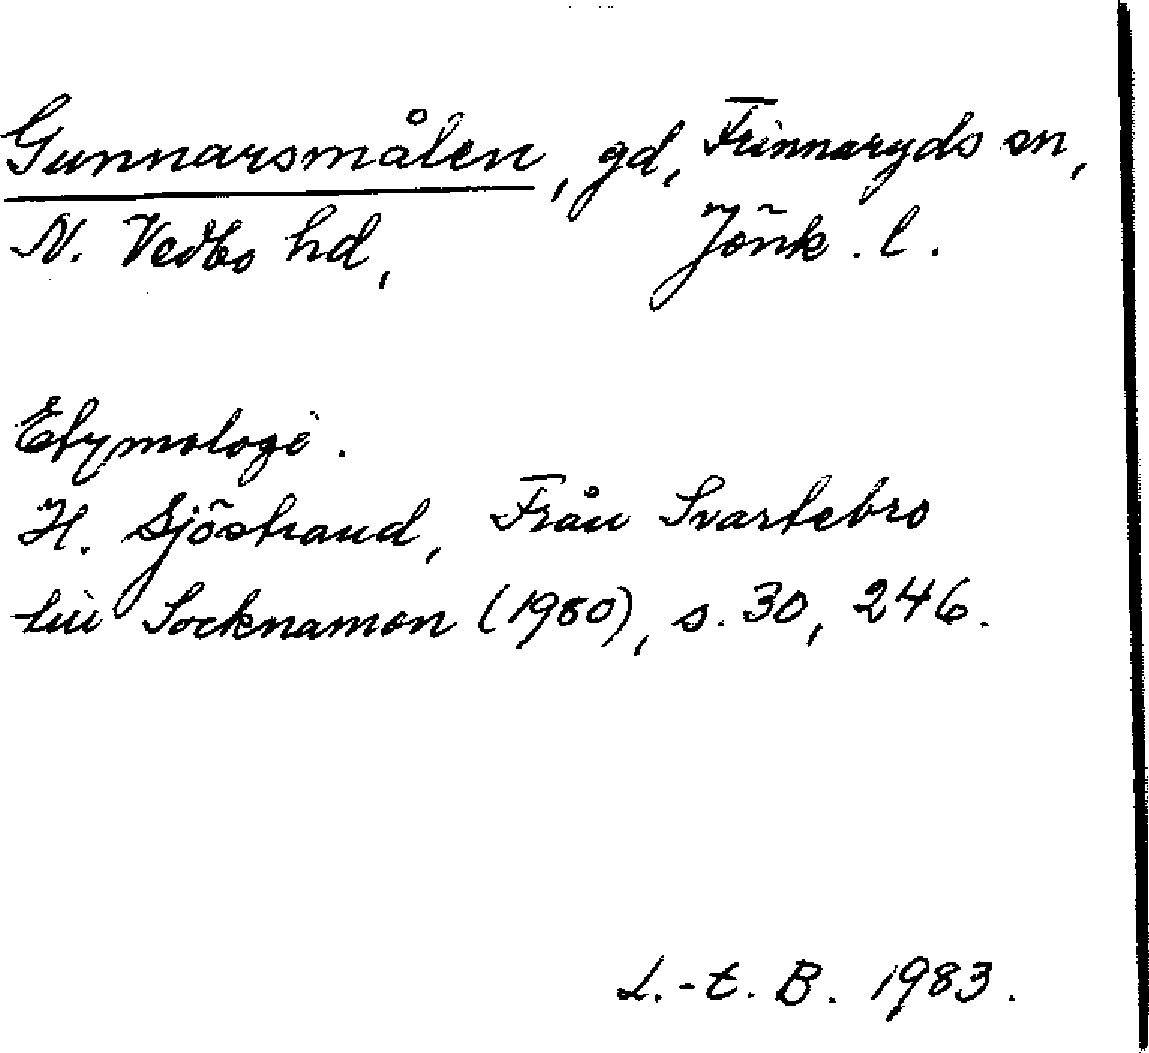 Gunnarsmålen, gd, Frinnaryds sn,
N. Vedbo hd, Jönk. l.
Etymologi.
H. Sjöstrand, Från Svartebro
till Socknamon (1980), s. 30, 246.
L.-t. B. 1983.